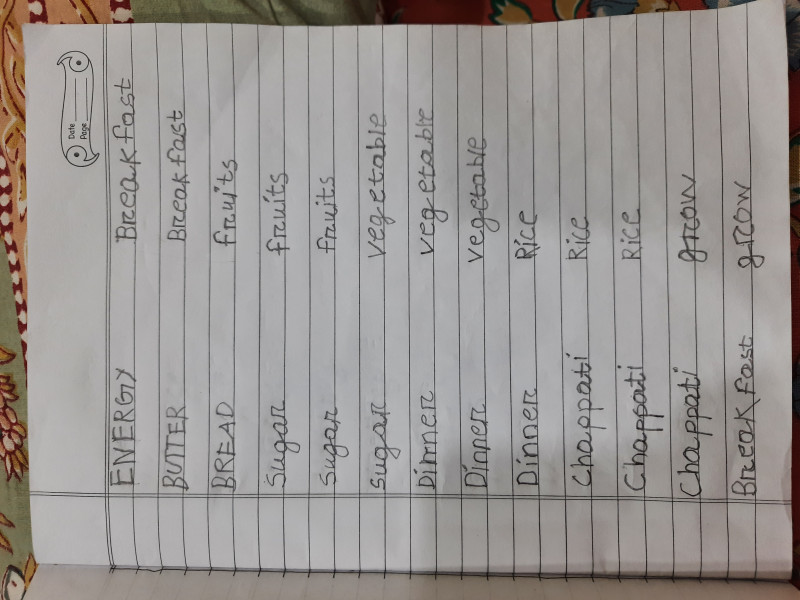 Date
Page
ENERGY Breakfast
BUTTER Breakfast
BREAD fruits
Sugar fruits
Sugar fruits
Sugar vegetable
Dinner vegetable
Dinner vegetable
Dinner Rice
Chappati Rice
Chappati Rice
Chappati grow
Breakfast grow